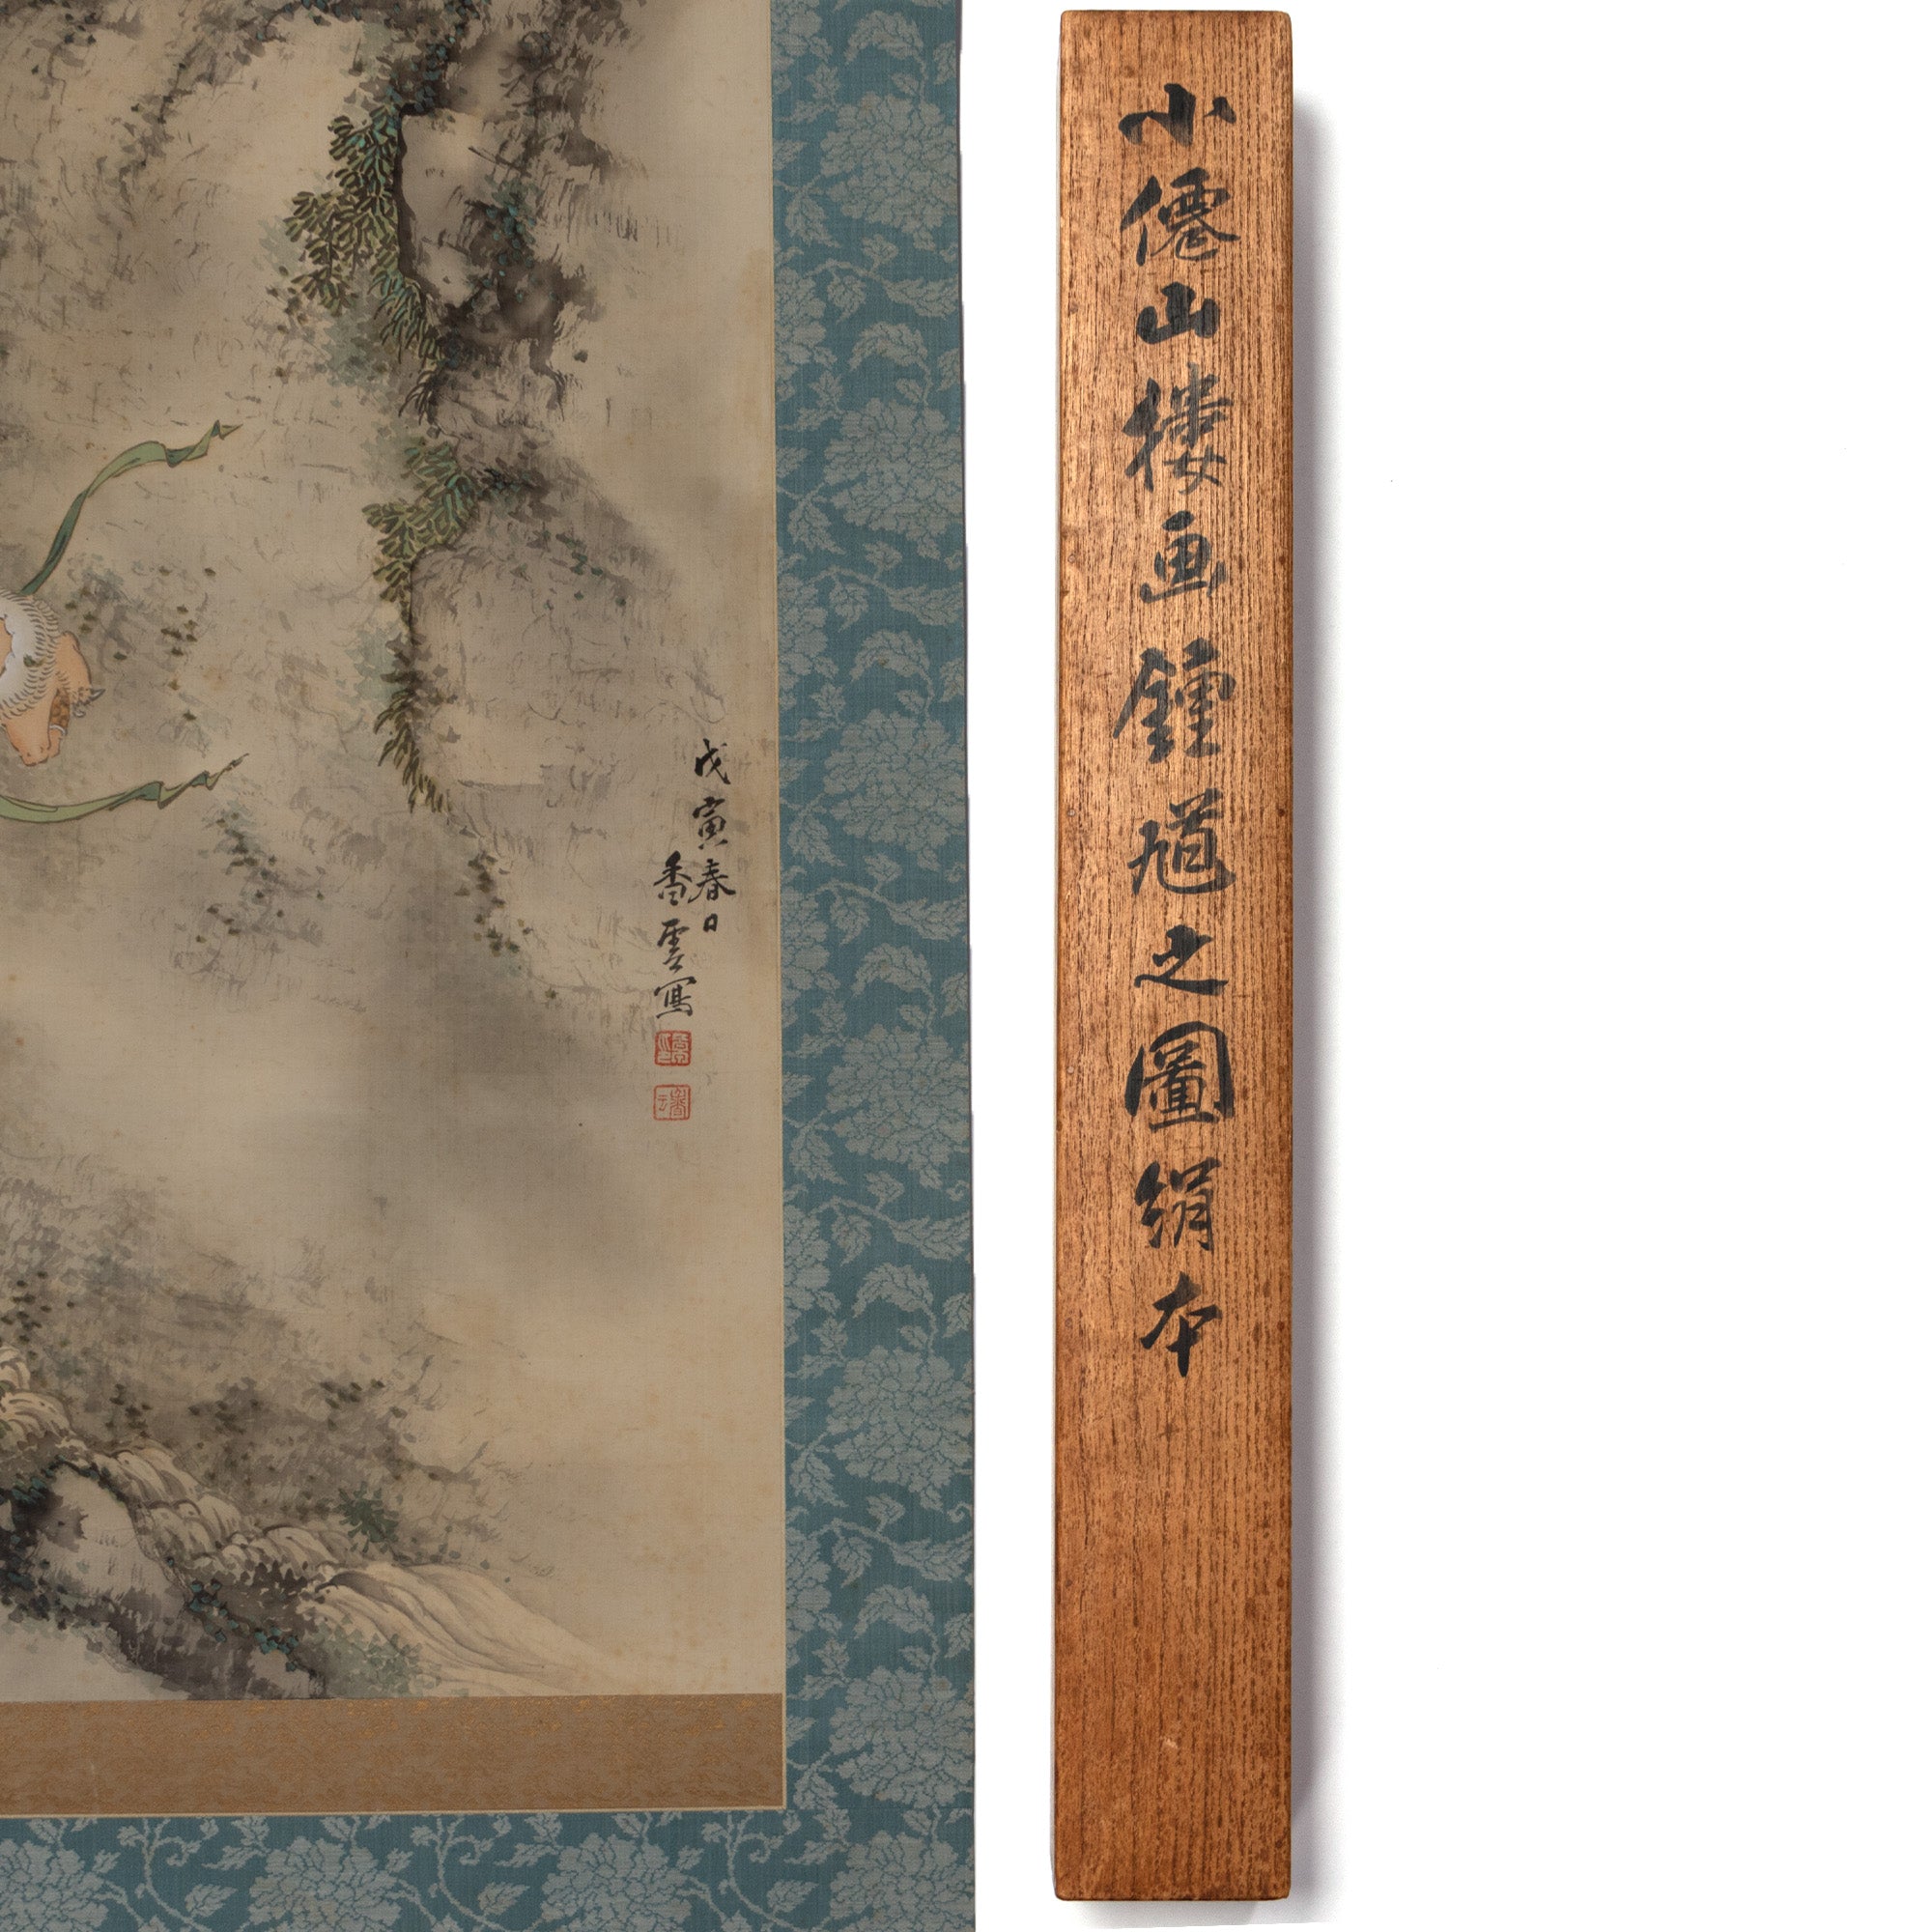 戊寅春日
香雲寫
小僊山樓画鍾馗之圖絹本